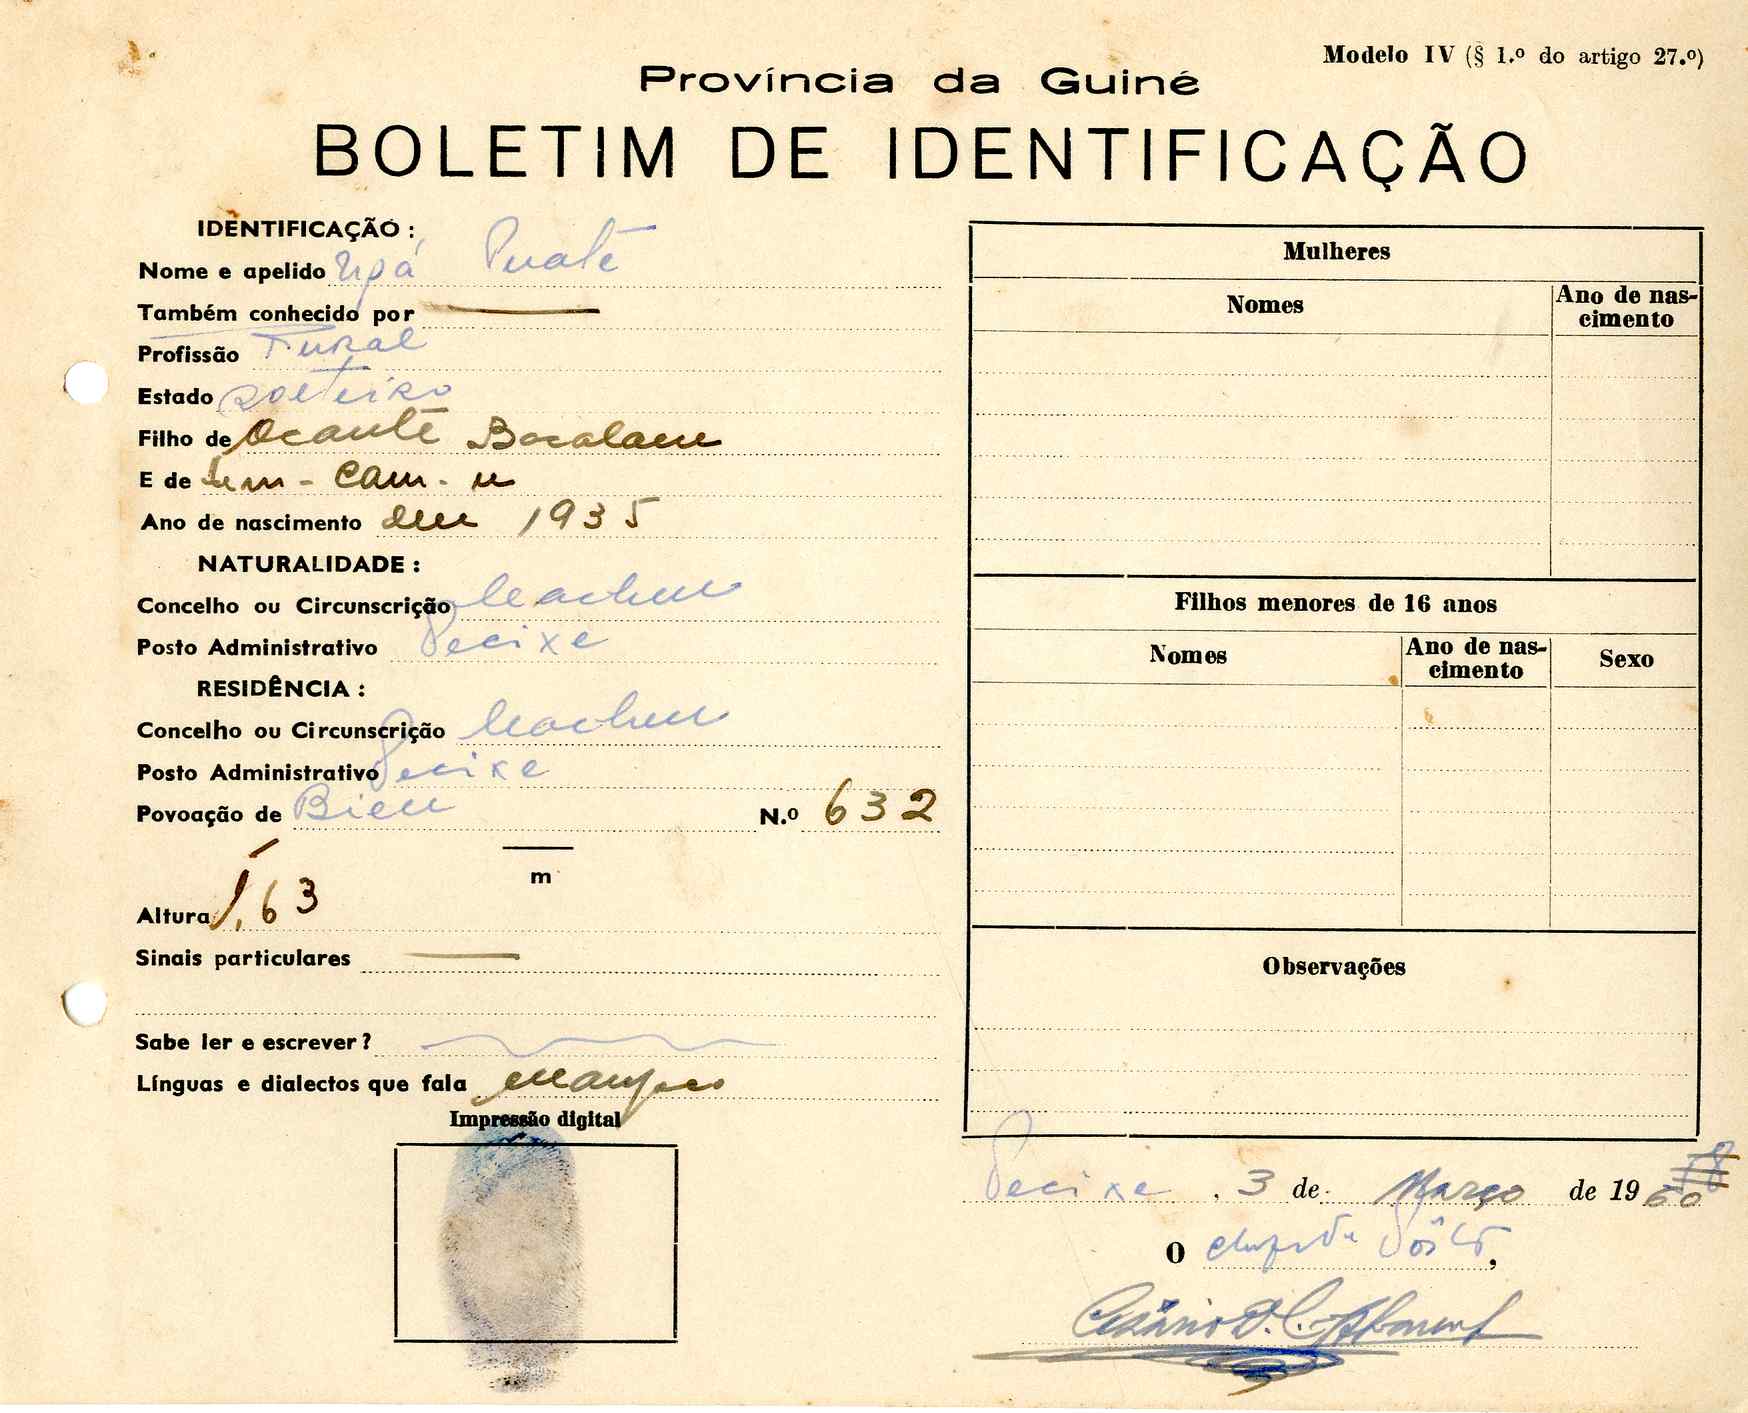 Modelo IV (§ 1.º do artigo 27.º)
Província da Guiné
BOLETIM DE IDENTIFICAÇÃO
IDENTIFICAÇÃO :
Nome e apelido Upá
Também conhecido por
Profissão Rural
Estado solteiro
Filho de Ocante Bocalam
E de
Ano de nascimento em 1935
NATURALIDADE :
Concelho ou Circunscrição Cacheu
Posto Administrativo Pecixe
RESIDÊNCIA :
Concelho ou Circunscrição Cacheu
Posto Administrativo Pecixe
Povoação de N.º 632
m
Altura 1,63
Sinais particulares
Sabe ler e escrever?
Línguas e dialectos que fala manjaco
Impressão digital
Mulheres
Nomes Ano de nas-
cimento
Filhos menores de 16 anos
Nomes Ano de nas-
cimento Sexo
Observações
Pecixe, 3 de Março de 1960
O Chefe de Posto,